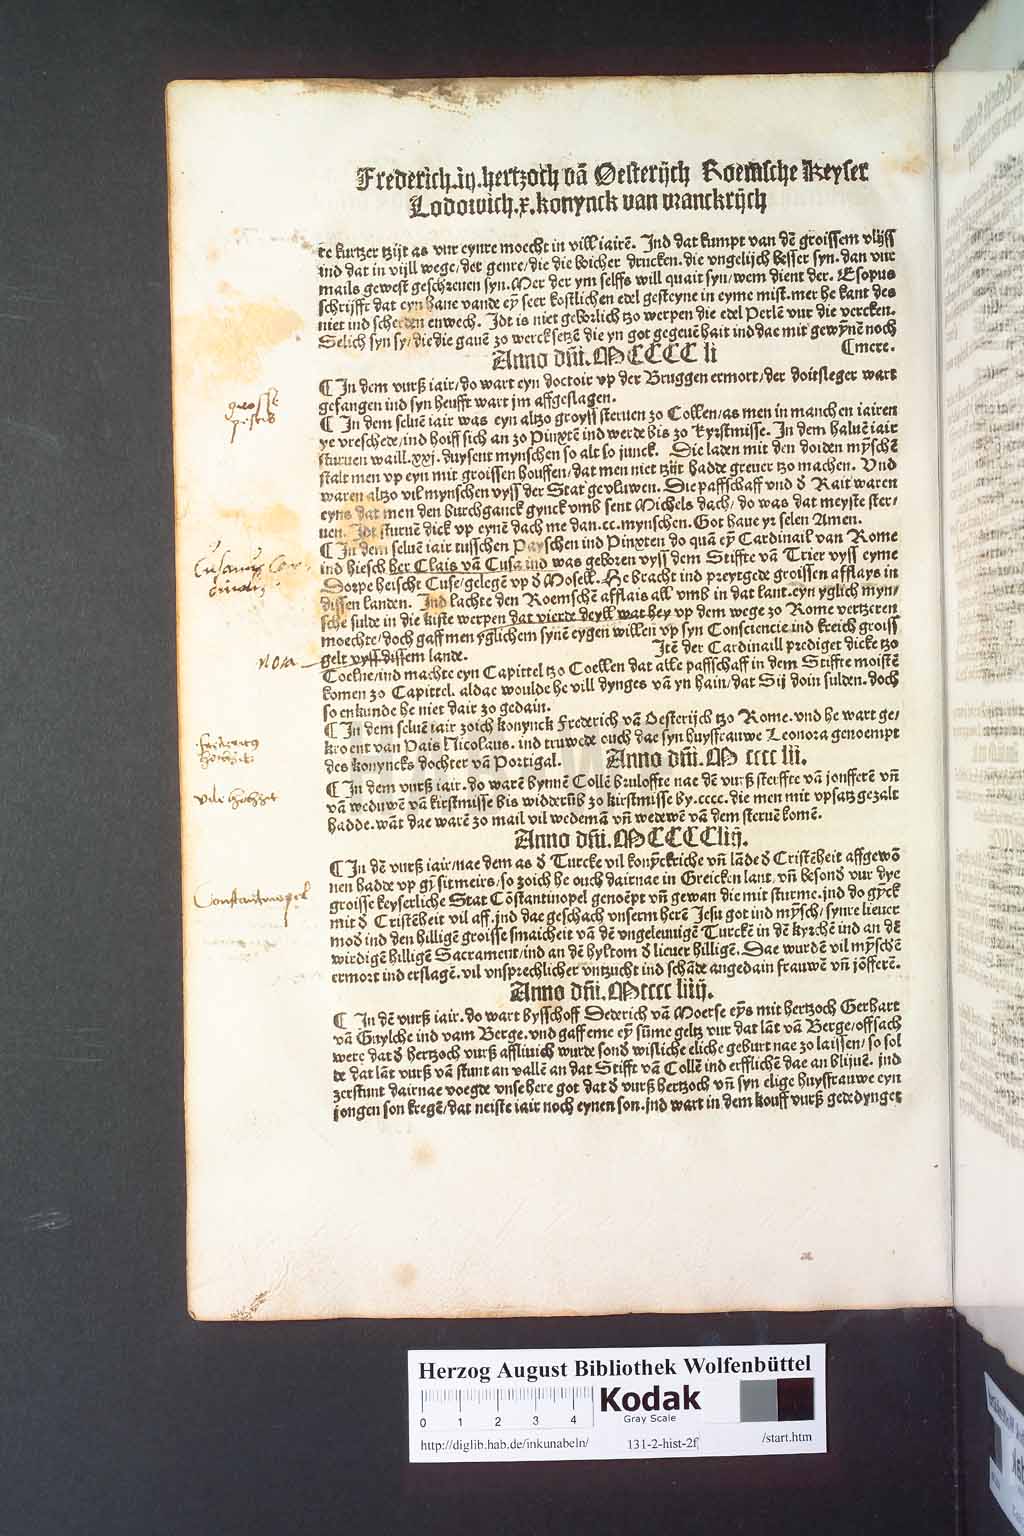 Frederich.iij.hertzoch vā Oesterijch Roemsche Keyser
Lodowich.x.konynck van vranckrijch
te kurtzer tzijt as vur eynre moecht in vill iairē. Ind dat kumpt van dē groissem vlijss
ind dat in vijll wege/der genre/die die boicher drucken.die vngelijch besser syn.dan vur
mails gewest geschreuen syn.Mer der ym selffs will quait syn/wem dient der. Esopus
schrijfft dat eyn hane vande eȳ seer kostlichen edel gesteyne in eyme mist.mer he kant des
niet ind scherden enwech. Idt is niet geborlich tzo werpen die edel Perlē vur die vercken.
Selich syn sy/die die gauē zo werck setzē die yn got gegeuē hait ind dae mit gewȳnē noch
Anno dn̄i.MCCCC li ⸿mere.
⸿ In dem vurß iair/do wart eyn doctoir vp der Bruggen ermort/der doitsleger wart
gefangen ind syn heufft wart jm affgeslagen.
⸿ In dem seluē iair was eyn altzo groyss steruen zo Collen/as men in manchen iairen
ye vreschede/ind hoiff sich an zo Pinxtē ind werde bis zo kyrstmisse. In dem haluē iair
sturuen waill.xxj.duysent mynschen so alt so junck. Die laden mit den doiden mȳschē
stalt men vp eyn mit groissen houffen/dat men niet tzijt hadde greuer tzo machen. Vnd
waren altzo vil mynschen vyss der Stat gevluwen. Die paffschaff vnd d Rait waren
eyns dat men den burchganck gynck vmb sent Michels dach/do was dat meyste ster/
uen. Idt sturuē dick vp eynē dach me dan.cc.mynschen. Got haue yr selen Amen.
⸿ In dem seluē iair tusschen Payschen ind Pinxten do quā eȳ Cardinail van Rome
ind hiesch her Clais van Cusa ind was geboren vyss dem Stiffte van Trier vyss eyme
Dorpe heischt Cuse/gelegē vp d Mosell. He bracht ind preytgede groissen afflays in
dissen landen. Ind lachte den Roemschē afflais all vmb in dat lant.eyn yglich myn/
sche sulde in die kiste werpen dat vierde deyll wat hey vp dem wege zo Rome vertzeren
moechte/doch gaff men yglichem synē eygen willen vp syn Consciencie ind kreich groiss
gelt vyss dissem lande. Itē der Cardinaill prediget dicke tzo
Coelne/ind machte eyn Capittel tzo Coellen dat alle paffschaff in dem Stiffte moistē
komen zo Capittel. aldae woulde he vill dynges vā yn hain/dat Sij doin sulden. doch
so enkunde he niet dair zo gedain.
⸿ In dem seluē iair zoich konynck Frederich vā Oesterijch tzo Rome.vnd he wart ge/
kroent van Pais Nicolaus. ind truwede ouch dae syn huysfrauwe Leonora genoempt
des konyncks dochter vā Portigal. Anno dn̄i.M cccc lii.
⸿ In dem vurß iair.do warē bynnē Collē bruloffte nae dē vurß sterffte vā jonfferē vn̄
vā weduwē vā kirstmisse bis widderūb zo kirstmisse by.cccc.die men mit vpsatz gezalt
hadde.wāt dae warē zo mail vil wedemā vn̄ wedewē vā dem steruē komē.
Anno dn̄i.MCCCCliij.
⸿ In dē vurß iair/nae dem as d Turcke vil konȳckriche vn̄ lāde d Cristēheit affgewō
nen hadde vp gȳsitmeirs/so zoich he ouch dairnae in Greicken lant.vn̄ besond vur dye
groisse keyserliche Stat Cōstantinopel genoēpt vn̄ gewan die mit sturme.ind do gȳck
mit d Cristēheit vil aff.ind dae geschach vnserm herē Jesu got ind mȳsch/synre lieuer
mod ind den hilligē groisse smaicheit vā dē vngeleuuigē Turckē in dē kyrchē ind an dē
wirdigē hilligē Sacrament/ind an dē hyltom d lieuer hilligē. Dae wurdē vil mȳschē
ermort ind erslagē.vil vnsprechlicher vntzucht ind schāde angedain frauwē vn̄ jōfferē.
Anno dn̄i.Mcccc liiij.
⸿ In dē vurß iair.do wart bysschoff Dederich vā Moerse eȳs mit hertzoch Gerhart
vā Guylche ind vam Berge.vnd gaff eme eȳ sūme geltz vur dat lāt vā Berge/off sach
were dat d hertzoch vurß affliuich wurde sond wisliche eliche geburt nae zo laissen/so sol
de dat lāt vurß vā stunt an vallē an dat Stifft vā Collē ind erfflichē dae an blijuē. jnd
zerstunt dairnae voegde vnse here got dat d vurß hertzoch vn̄ syn elige huysfrauwe eyn
jongen son kregē/dat neiste iair noch eynen son.jnd wart in dem kouff vurß gededynget
grosse
pestis
Cusanus Car-
dinalis
nota
fridericus
hochzeit
vile hochzeit
Constantinopel
Herzog August Bibliothek Wolfenbüttel
0 1 2 3 4
Kodak
Gray Scale
http://diglib.hab.de/inkunabeln/ 131-2-hist-2f /start.htm